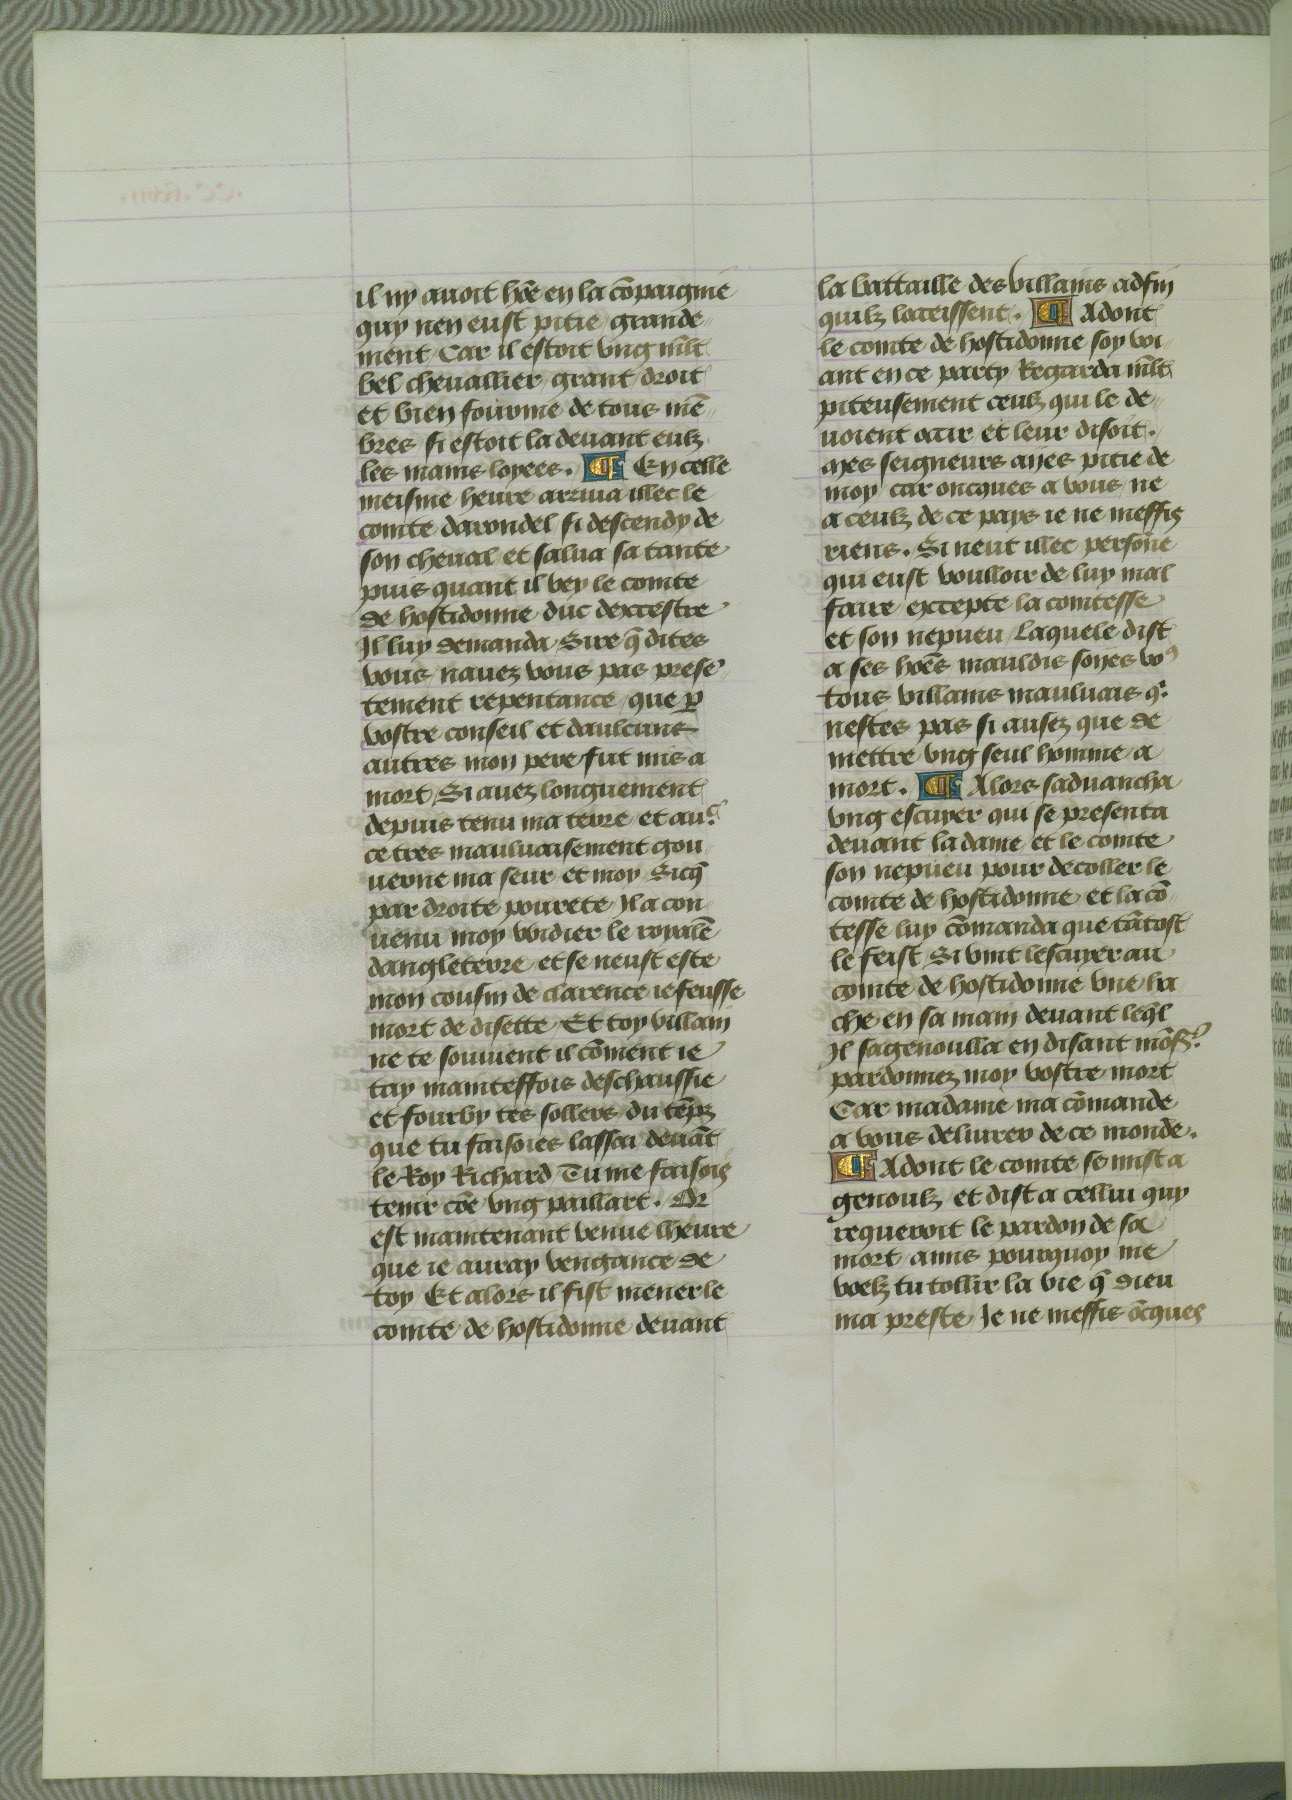 il ny auoit hōe en la cōpaignie
quy nen eust pitie grande-
ment Car il estoit vng mlt
bel cheuallier grant droit
et bien fourme de tous mē-
bres si estoit la deuant eulz
les mains loyees. ¶ En celle
meisme heure arriua illec le
comte darondel si descendy de
son cheual et salua sa tante
puis quant il vey le comte
de hostidonne duc dexcestre
Il luy demanda Sire q̄ dites
vous nauez vous pas prese-
tement repentance que p̱
vostre conseil et daulcuns
autres mon pere fut mis a
mort Si auez longuement
depuis tenu ma terre et au⁹
ce tres mauluaisement gou-
uerne ma seur et moy Sicq̄
par droite pourete Il a con-
uenu moy vuidier le royalē
dangleterre et se neust este
mon cousin de clarence ie feusse
mort de disette Et toy villain
ne te souuient il cōment ie
tay maintesfois deschaussie
et fourby tes sollers du tēpz
que tu faisoies lassai deuāt
le Roy Richard Tu me faisois
tenir cōe vng paillart. Or
est maintenant venue lheure
que ie auray vengance de
toy Et alors il fist mener le
comte de hostidonne deuant
la battaille des villains adfin
quilz loceissent. ¶ Adont
le comte de hostidonne soy voi-
ant en ce party Regarda mlt
piteusement ceulz qui le de-
uoient ocir et leur disoit.
Mes seigneurs ayes pitie de
moy car oncques a vous ne
a ceulz de ce pays ie ne meffis
riens. Si neut illec persōne
qui eust voulloir de luy mal
faire excepte la comtesse
et son nepueu Laquele dist
a ses hōēs mauldis soyes vo⁹
tous villains mauluais q̇
nestes pas si ausez que de
mettre vng seul homme a
mort. ¶ Alors saduancha
vng escuyer qui se presenta
deuant la dame et le comte
son nepueu pour decoller le
comte de hostidonne et la cō-
tesse luy cōmanda que tātost
le feist Si vint lescuyer au
comte de hostidonne vne ha-
che en sa main deuant leq̄l
Il sagenoulla en disant mōs⁹
pardonnez moy vostre mort
Car madame ma cōmande
a vous deliurer de ce monde.
¶ Adont le comte se mist a
genoulz et dist a cellui quy
requeroit le pardon de sa
mort amis pourquoy me
voelz tu tollir la vie q̄ dieu
ma preste Je ne meffis ōcques